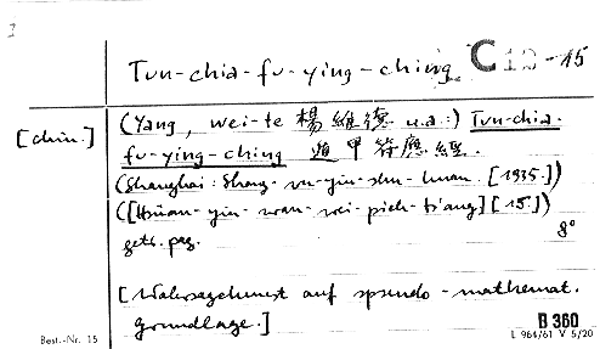 Tun-chia-fu-ying-ching C 10-15
[chin.]
(Yang, wei-te 楊維德 u.a.:) Tun-chia-
fu-ying-ching 遁甲符應經.
(Shanghai: Shang-wu-yin-shu-kuan. [1935.])
([Hsüan-yin-wan-wei-pieh-ts'ang] [15.])
getr. pag. 8°
[Wahrsagekunst auf pseudo-mathemat.
Grundlage.]
B 360
Best.-Nr. 15 L 964/61 V 5/20